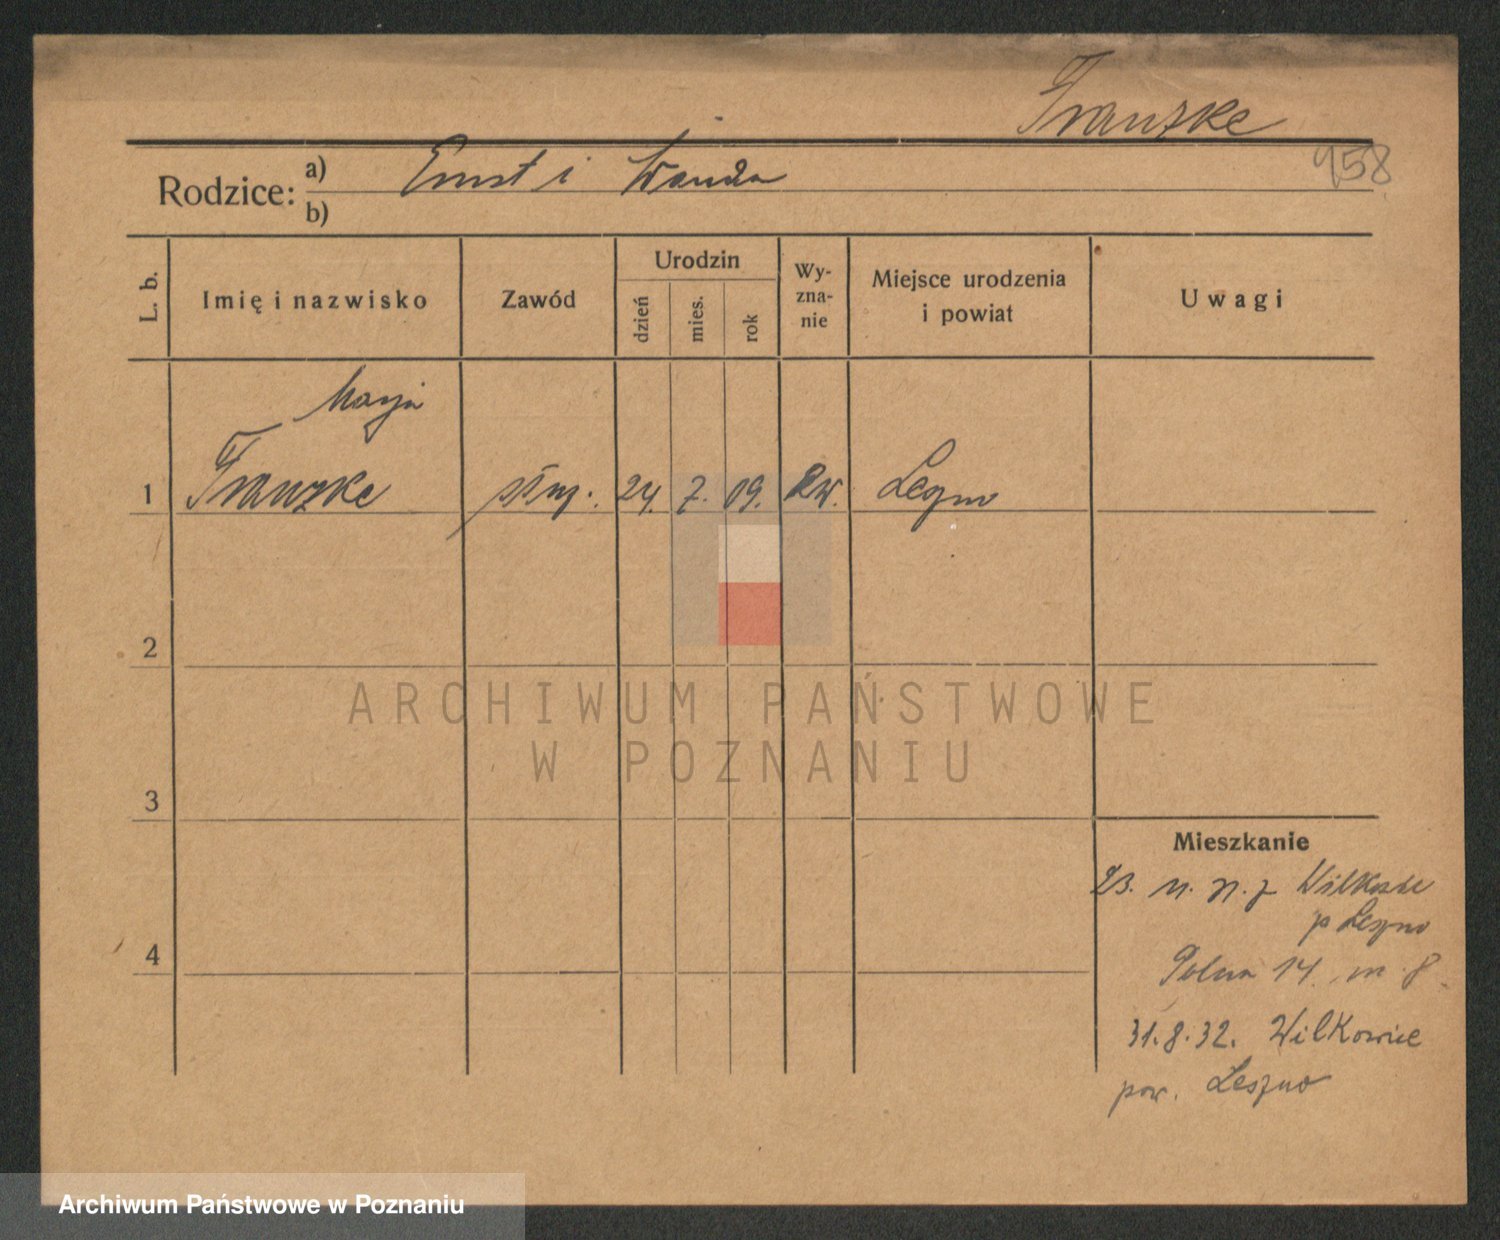 Franzke
958
Rodzice: a) Ernst i Wanda
b)
L. b.
Imię i nazwisko
Zawód
Urodzin
dzień
mies.
rok
Wy-
zna-
nie
Miejsce urodzenia
i powiat
Uwagi
Marja
1 Franzke służ. 24. 7. 09. ew. Leszno
2
3
4
ARCHIWUM PAŃSTWOWE
W POZNANIU
Mieszkanie
z Wilkowice
p Leszno
Polna 14. m 8.
31.8.32. Wilkowice
pow. Leszno
Archiwum Państwowe w Poznaniu